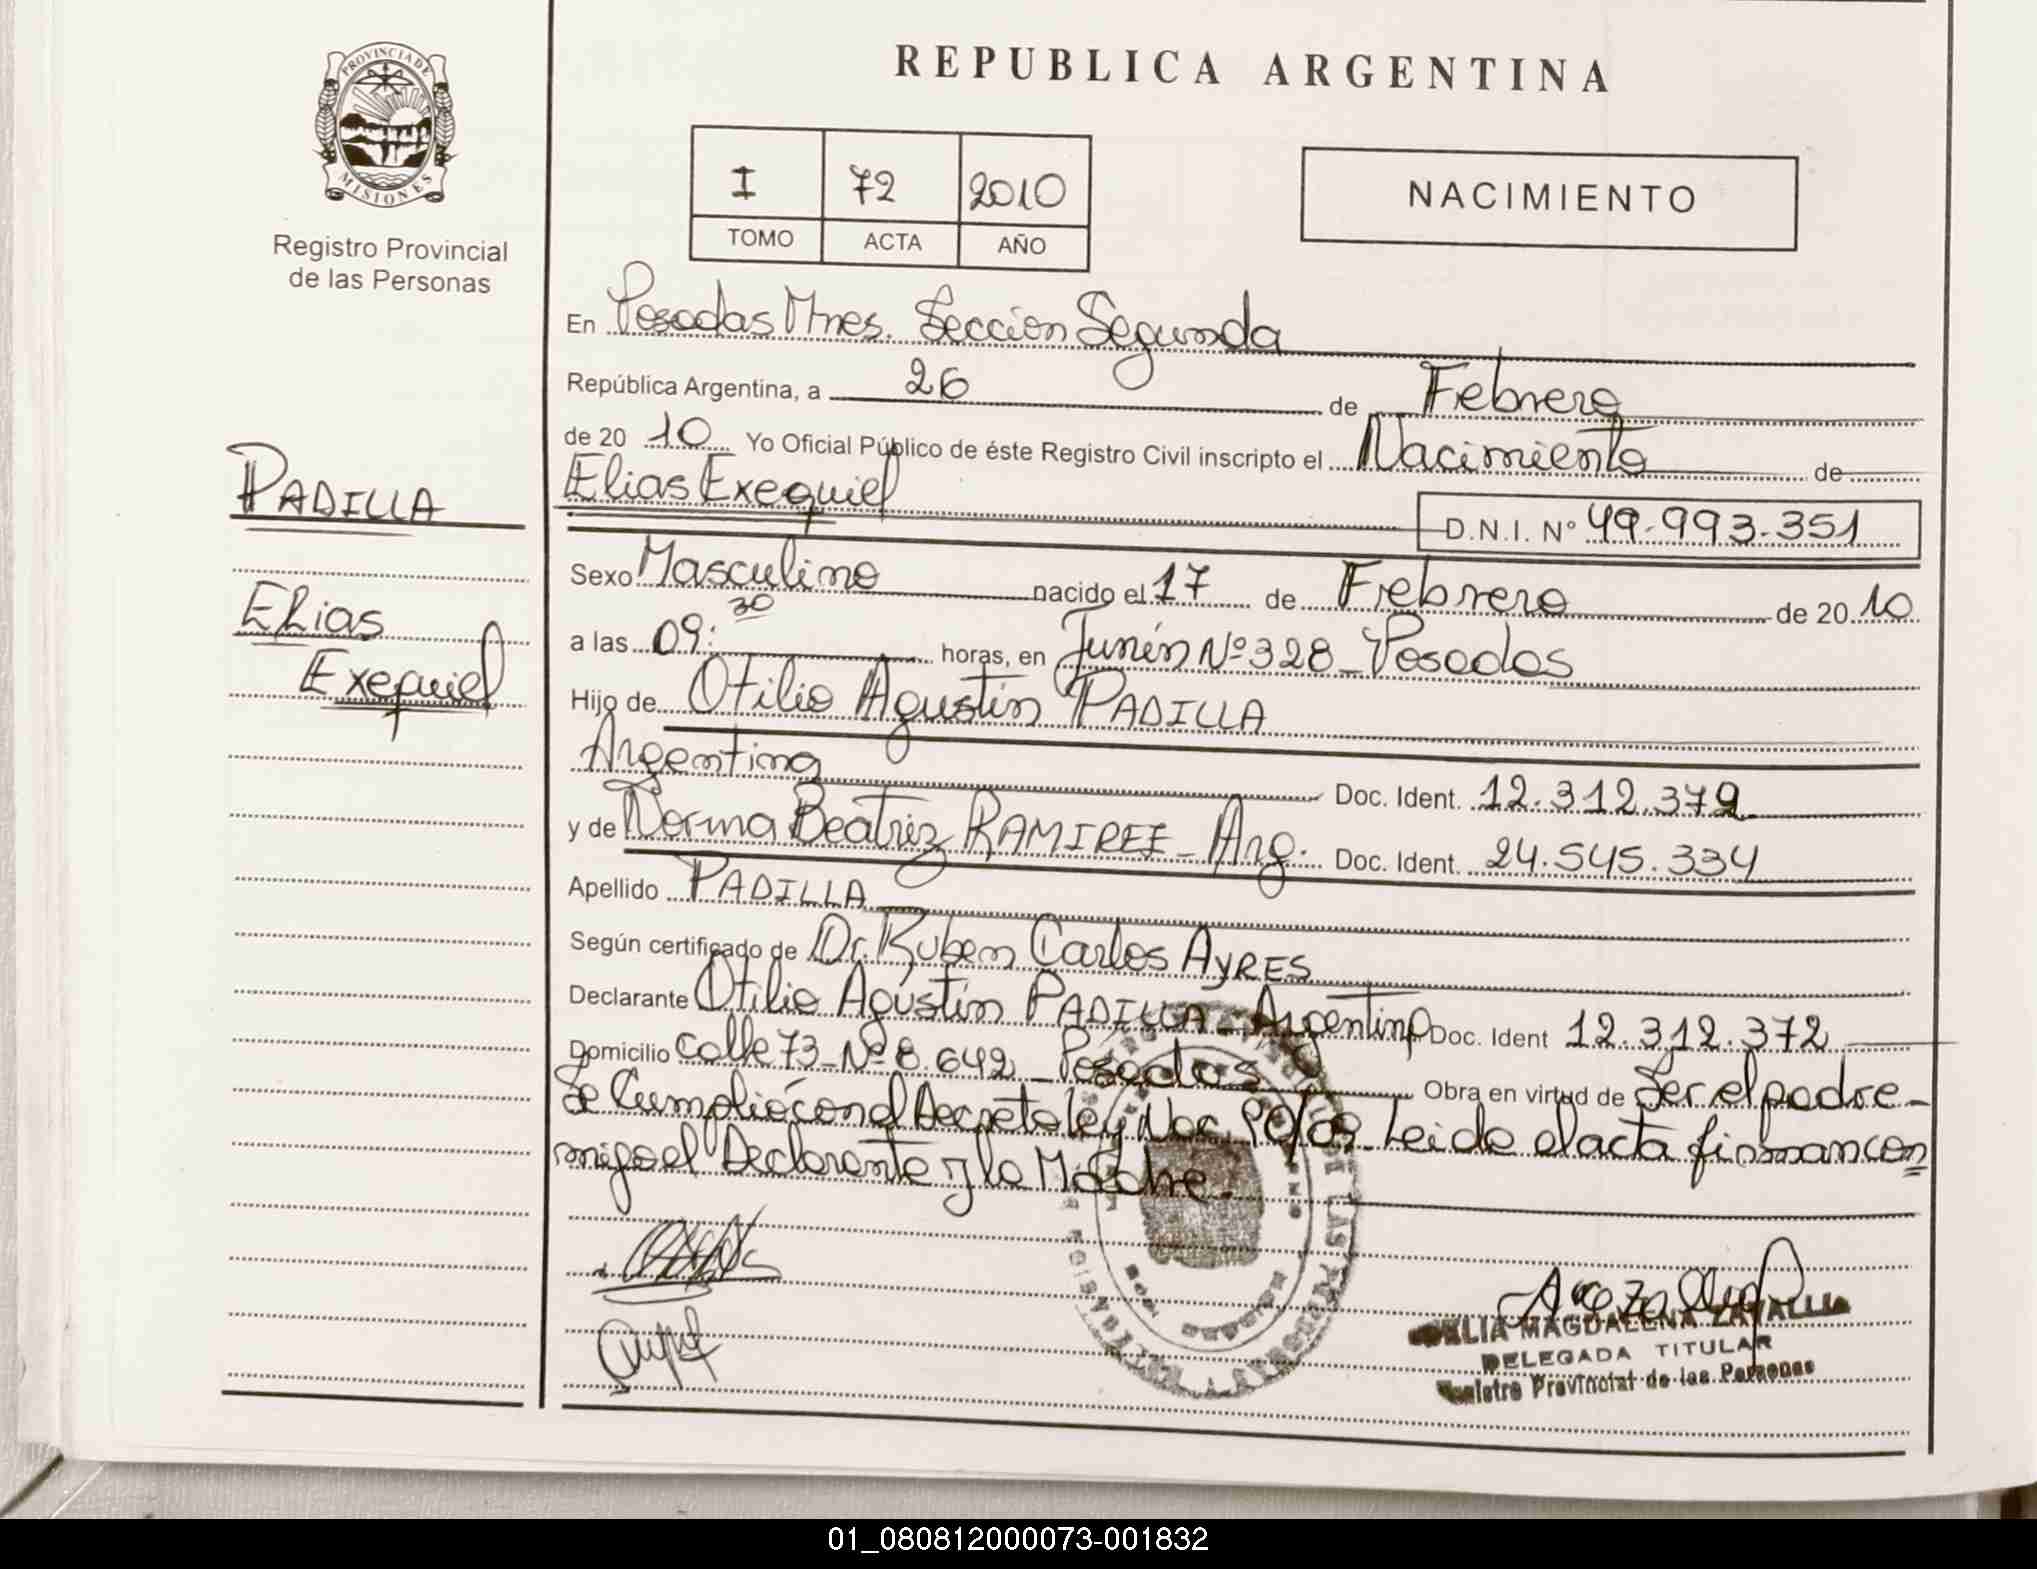 PROVINCIA DE
MISIONES
Registro Provincial
de las Personas
REPUBLICA ARGENTINA
I 72 2010
TOMO ACTA AÑO
NACIMIENTO
En Posadas Mnes. Sección Segunda
República Argentina, a 26 de Febrero
de 20 10 Yo Oficial Público de éste Registro Civil inscripto el Nacimiento de
Elias Exequiel
D.N.I. Nº 49.993.351
PADILLA
Elias
Exequiel
Sexo Masculino nacido el 17 de Febrero de 20 10
a las 09:30 horas, en Junín Nº 328 - Posadas
Hijo de Otilio Agustín PADILLA
Argentino Doc. Ident. 12.312.372
y de Norma Beatriz RAMIREZ - Arg. Doc. Ident. 24.545.334
Apellido PADILLA
Según certificado de Dr. Ruben Carlos AYRES
Declarante Otilio Agustín PADILLA - Argentino Doc. Ident 12.312.372
Domicilio Calle 73 - Nº 8.642 - Posadas Obra en virtud de Ser el padre -
Se Cumplió con el Decreto ley Nac. Leido el acta firman con
migo el Declarante y la Madre.
MAGDALENA ZAVALLIA
DELEGADA TITULAR
Registro Provincial de las Personas
01_080812000073-001832